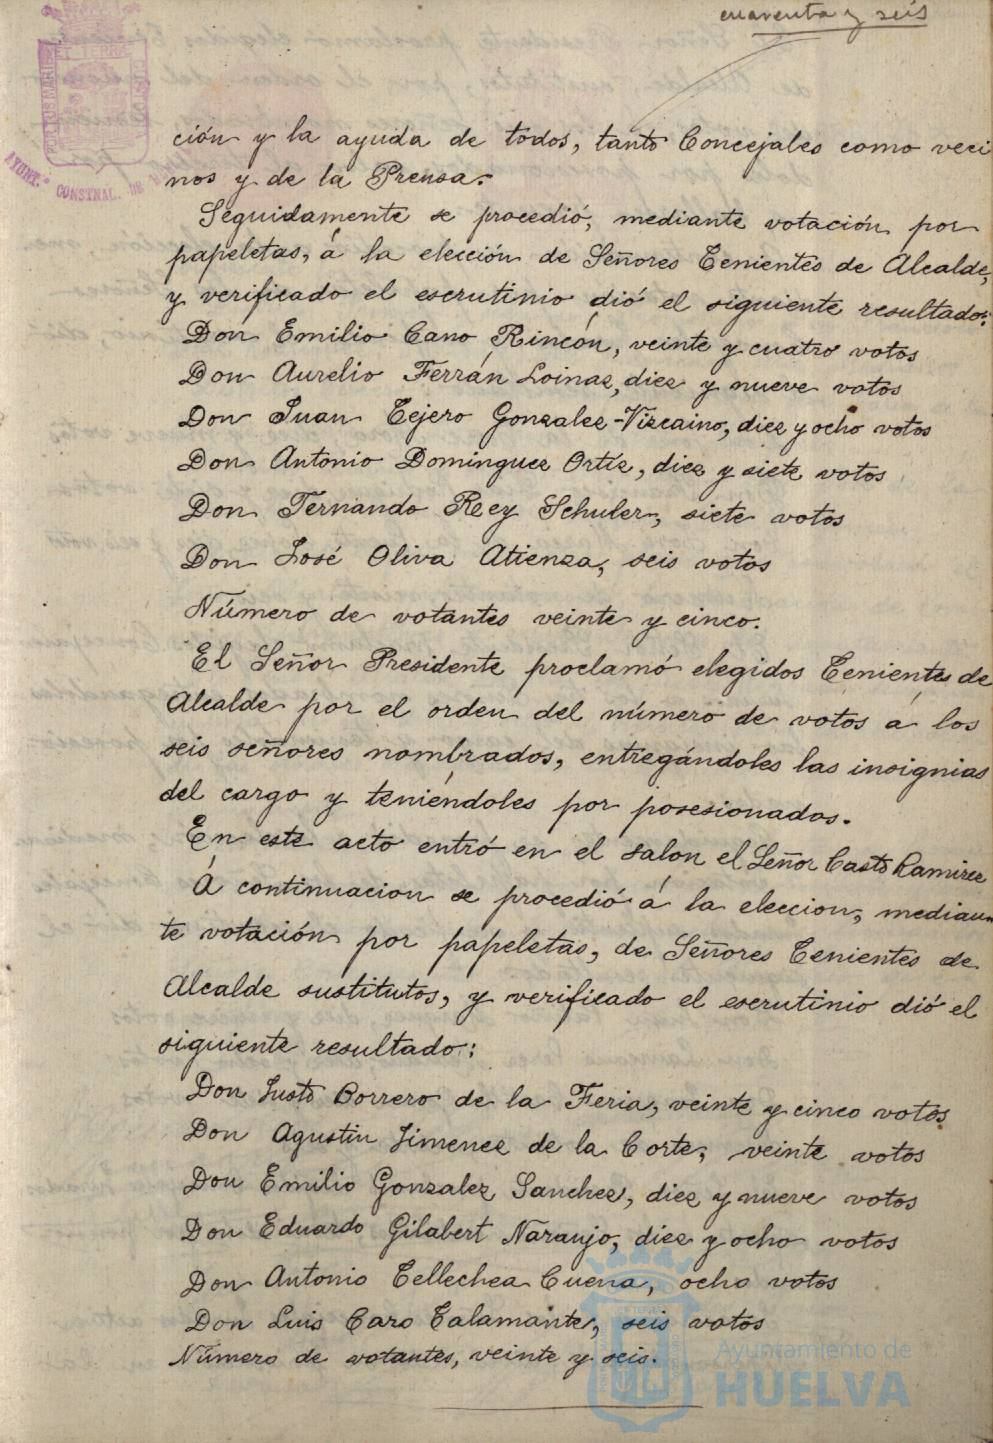 cuarenta y seis
ción y la ayuda de todos, tanto Concejales como veci
nos y de la Prensa.
Seguidamente se procedió, mediante votación por
papeletas, á la elección de Señores Tenientes de Alcalde,
y verificado el escrutinio dió el siguiente resultado:
Don Emilio Cano Rincón, veinte y cuatro votos
Don Aurelio Ferrán Loinaz, diez y nueve votos
Don Juan Tejero Gonzalez-Vizcaino, diez y ocho votos
Don Antonio Dominguez Ortíz, diez y siete votos
Don Fernando Rey Schuler, siete votos
Don José Oliva Atienza, seis votos
Número de votantes veinte y cinco.
El Señor Presidente proclamó elegidos Tenientes de
Alcalde por el orden del número de votos á los
seis señores nombrados, entregándoles las insignias
del cargo y teniéndoles por posesionados.
En este acto entró en el salon el Señor Casto Ramirez
Á continuacion se procedió á la eleccion, median
te votación por papeletas, de Señores Tenientes de
Alcalde sustitutos, y verificado el escrutinio dió el
siguiente resultado:
Don Justo Borrero de la Feria, veinte y cinco votos
Don Agustin Jimenez de la Corte, veinte votos
Don Emilio Gonzalez Sanchez, diez y nueve votos
Don Eduardo Gilabert Naranjo, diez y ocho votos
Don Antonio Tellechea Cuena, ocho votos
Don Luis Caro Talamante, seis votos
Número de votantes, veinte y seis.
AYUNT.º CONSTNAL. DE
Ayuntamiento de
HUELVA